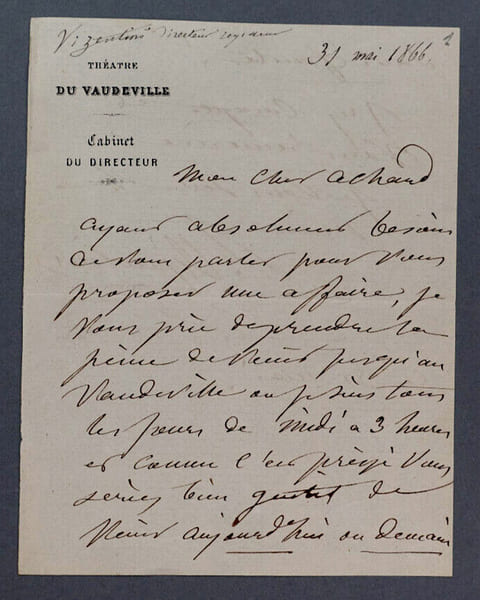 Vizentini Directeur
31 mai 1866.
THÉATRE
DU VAUDEVILLE
Cabinet
DU DIRECTEUR
Mon cher achard
ayant absolument besoin
de vous parler pour vous
proposer une affaire, je
vous prie de prendre la
peine de venir jusqu'au
Vaudeville ou je suis tous
les jours de midi a 3 heures
et comme c'est pressé vous
seriez bien gentil de
venir aujourd'hui ou demain